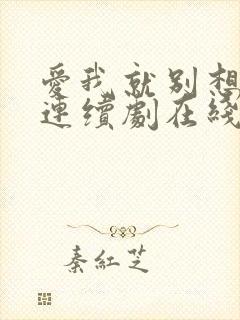 愛我就別想
連續劇在綫
秦紅芝